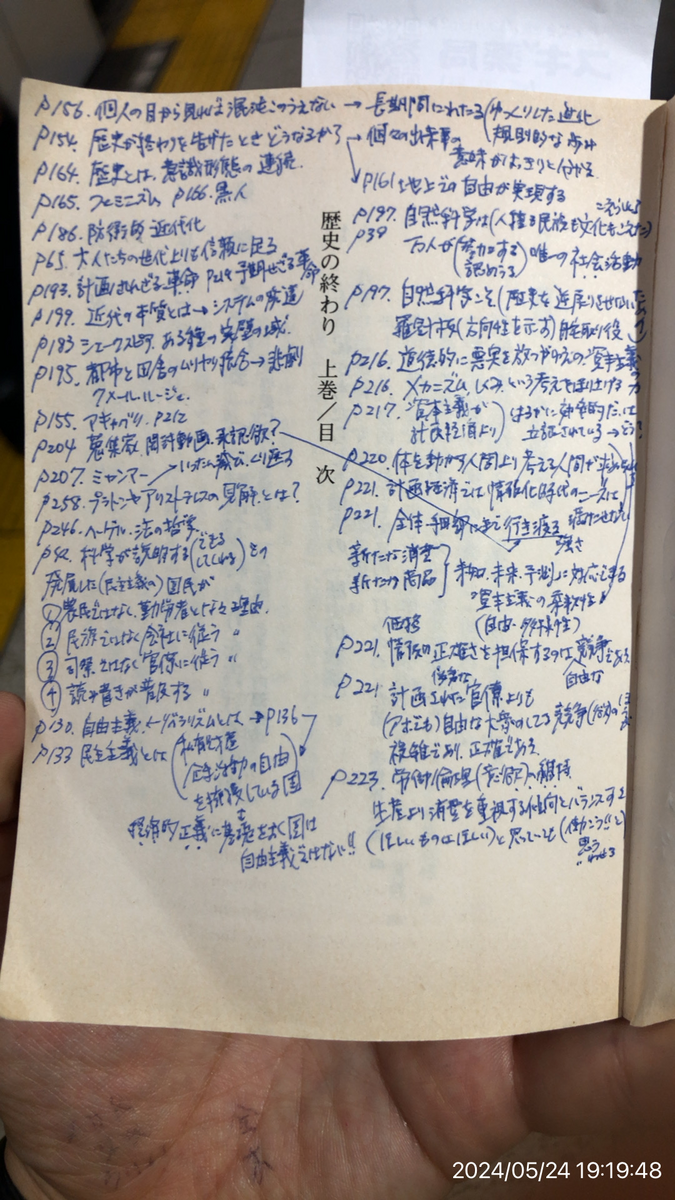 P156. 個人の目から見れば混沌このうえない → 長期間にわたる(ゆっくりした進化
規則的な歩み
P154. 歴史が終わりを告げたときどうなるか? → 個々の出来事の
意味がはっきりと分かる
→ P161 地上での自由が実現する
P164. 歴史とは、意識形態の連続
P165. フェミニズム P166. 黒人
P186. 防衛的近代化
P65. 大人たちの世代よりも信頼に足る
P193. 計画されざる革命 P219 予期せざる革命
P199. 近代の本質とは→システムの
P183 シェークスピア. ある種の
P195. 都市と田舎のムリヤリ統合→悲劇
クメール・ルージュ.
P155. マキャベリ. P212
P204 蒐集家. 承認欲?
P207. ミャンマー
P258. プラトンやアリストテレスの見解とは?
P246. ヘーゲル. 法の哲学
科学が説明する(できる
してくれる)
発展した(民主主義の)国民が
① 農民ではなく、勤労者となる理由.
② 民族ではなく会社に従う 〃
③ 司祭ではなく官僚に従う 〃
④ 読み書きが普及する 〃
P130. 自由主義. ←リベラリズムとは → P136
P133 民主主義とは(私有財産
経済活動の自由)
を擁護している国
経済的正義に基礎を大く国は
自由主義ではない!!
歴史の終わり 上巻/目 次
P197. 自然科学は(人種も民族も文化もこえた)
P39 万人が(努力する
認めうる) 唯一の社会活動
P197. 自然科学こそ(歴史を逆戻りさせない
羅針板(方向性を示す)
P216. 資本主義
P216. メカニズム、しくみという考えをほり下げる
P217. 資本主義が
計画経済より) はるかに効率的だ、は
立証されている→どう?
P220. 体を動かす人間より考える人間が求められ
P221. 計画経済では情報化時代のニーズは
満たせない
P221. 全体・細部にまで行き渡る
強さ
新たな消費
新たな商品} 未知、未来、予測に対応できる
“資本主義”の柔軟性
(自由・多様性)
価格
P221. 情報の正確さを担保するのは競争である
自由な
優秀な
P221 計画された官僚よりも
(アホでも)自由な大衆のしてる競争(欲)のほう
複雑であり、正確である.
P223. 労働倫理
生産より消費を重視する傾向とバランスする
(ほしいものはほしい)と思っていても(働こう!!と
思う